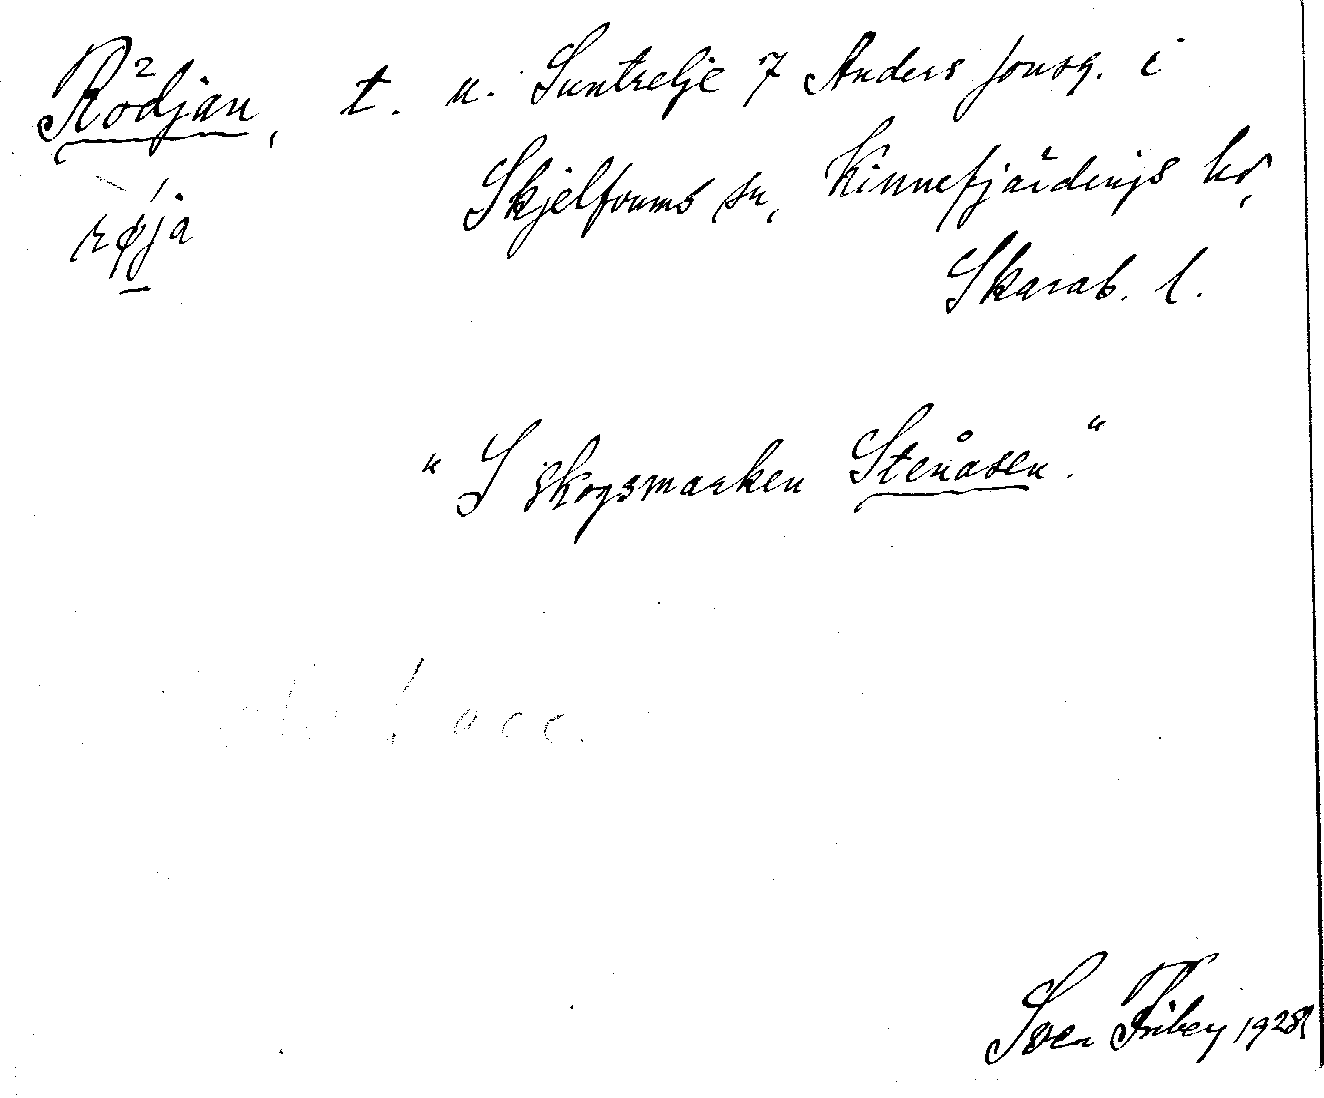 Rödjan, t. u. Suntrelje 7 Anders Jonsg. i
Skjelfvums sn, Kinnefjärdings hd,
røja
Skarab. l.
"I skogsmarken Stenåsen."
acc.
Sven Friberg 1928